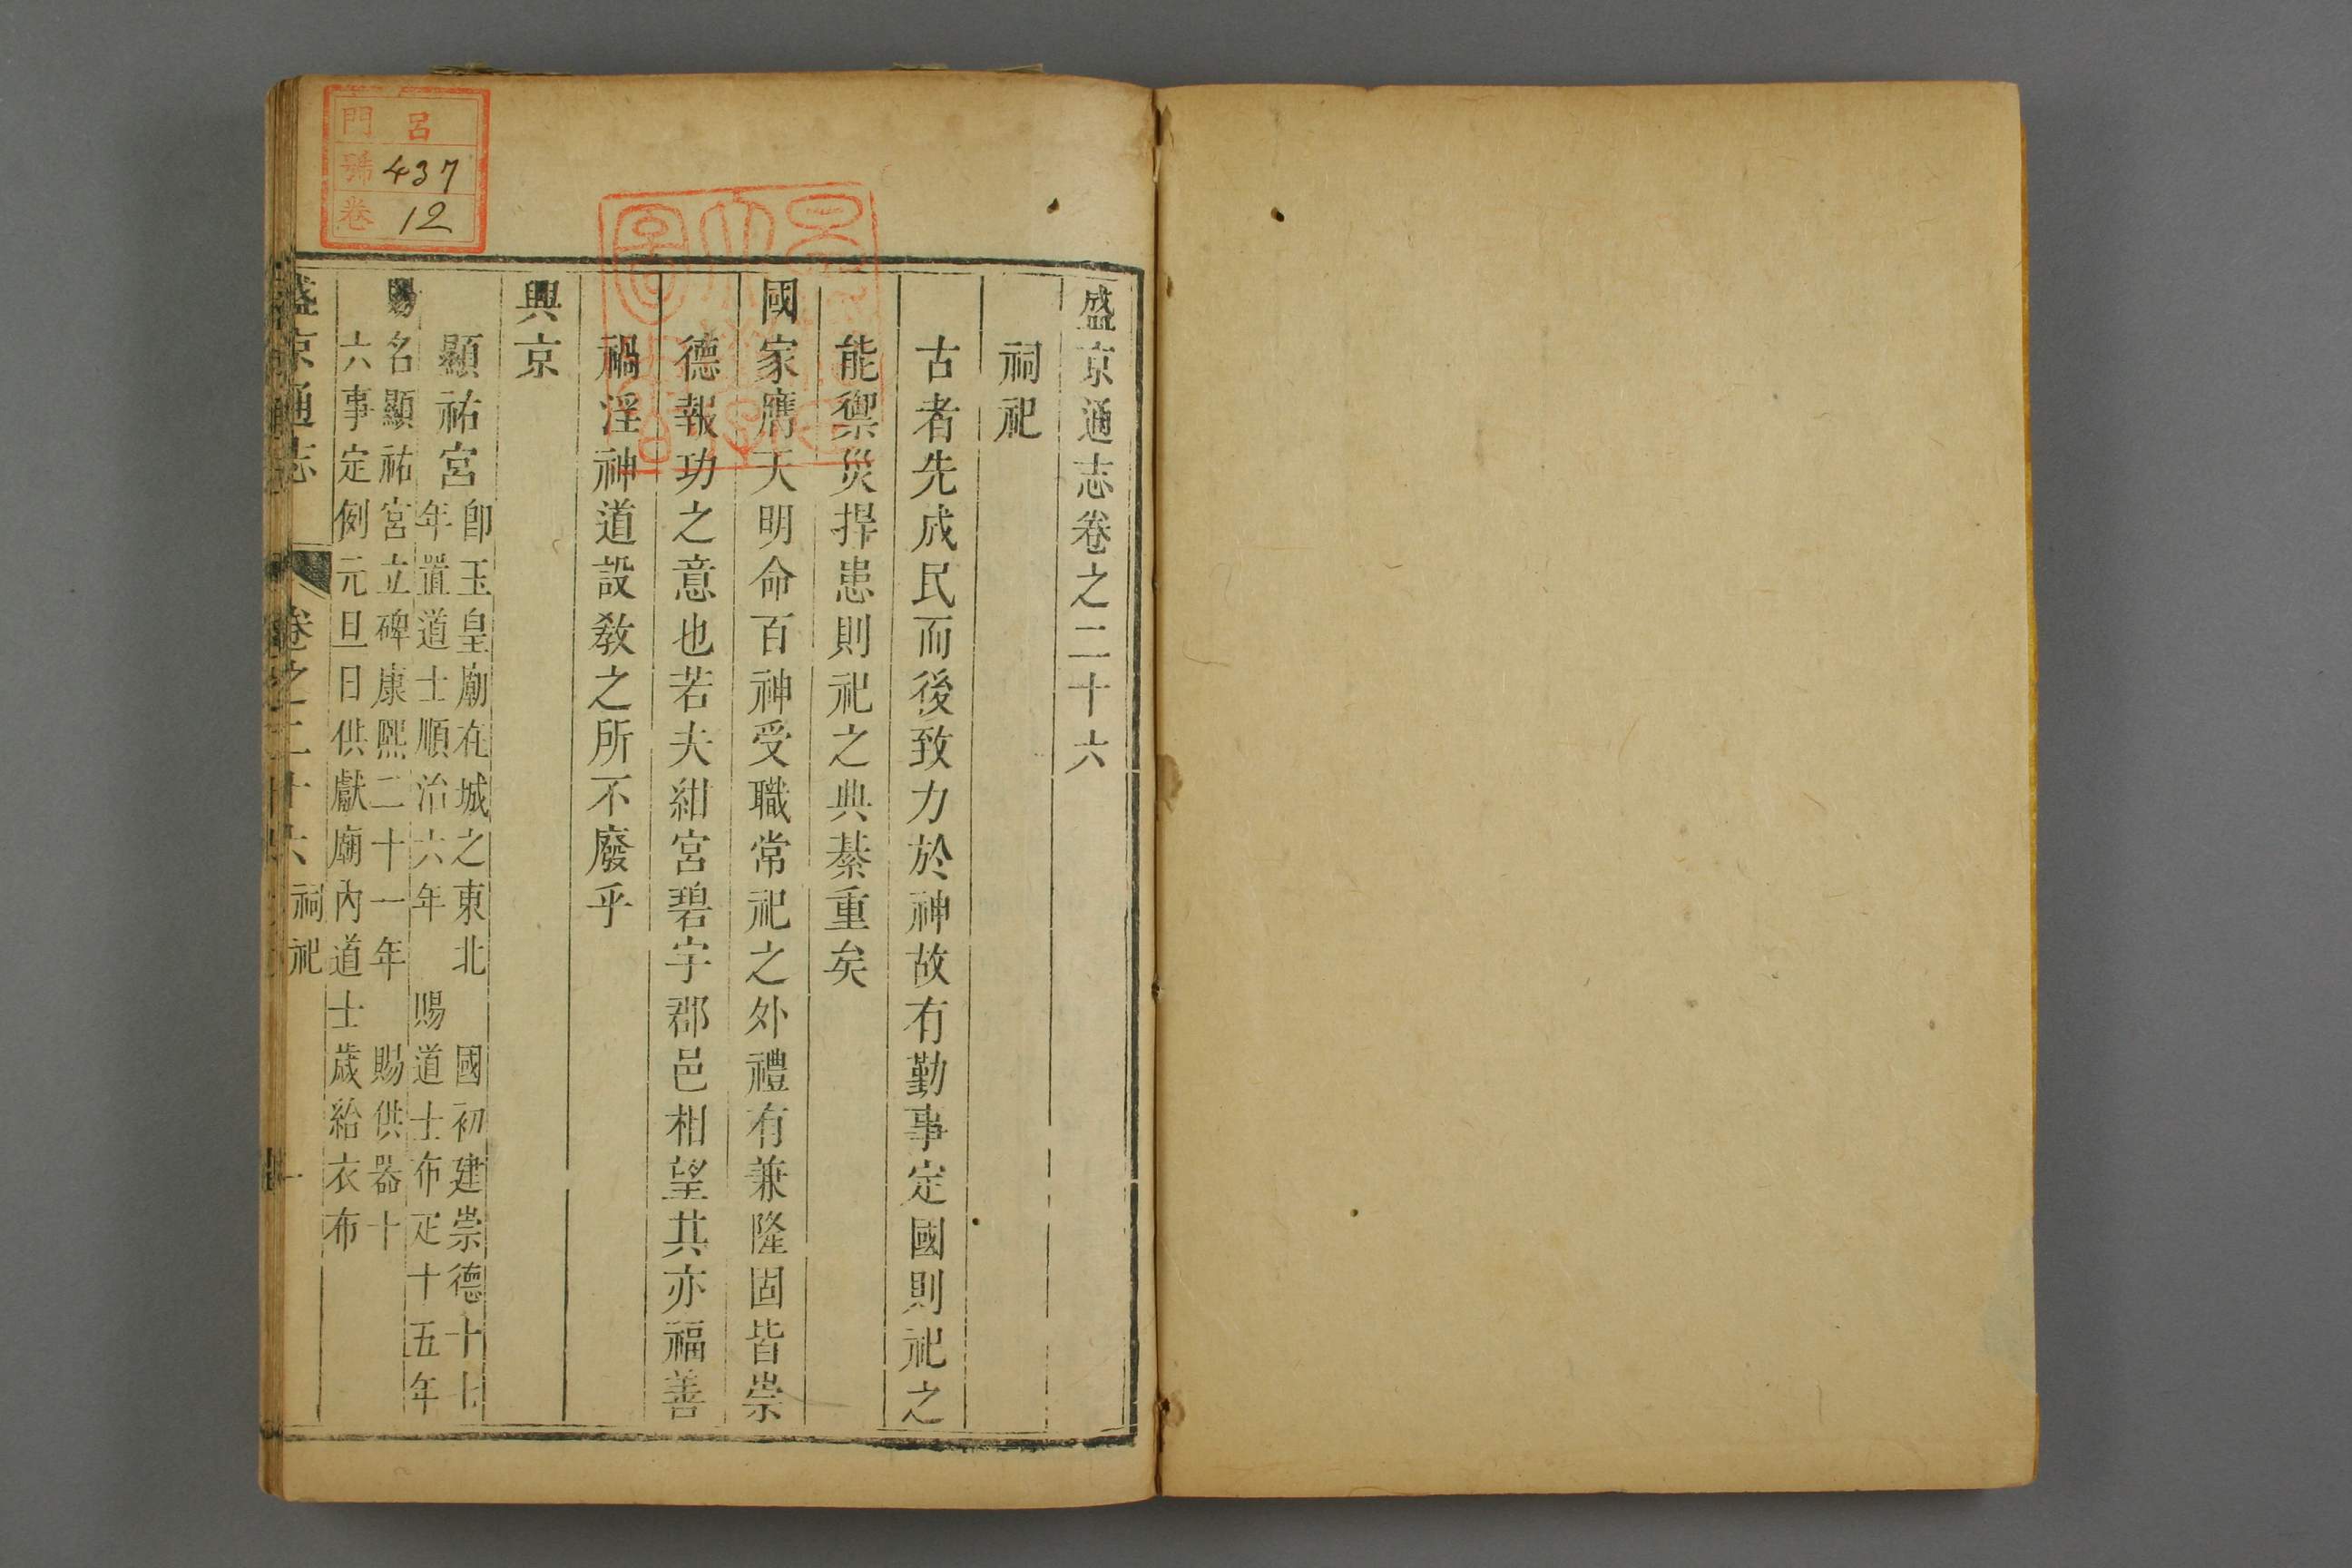 盛京通志卷之二十六
祠祀
古者先成民而後致力於神故有勤事定國則祀之
能禦災捍患則祀之典綦重矣
國家膺天明命百神受職常祀之外禮有兼隆固皆崇
德報功之意也若夫紺宮碧宇郡邑相望其亦福善
禍淫神道設教之所不廢乎
興京
顯祐宮
卽玉皇廟在城之東北 國初建崇德十七
年置道士順治六年 賜道士布疋十五年
賜名顯祐宮立碑康熙二十一年 賜供器十
六事定例元旦日供獻廟內道士歲給衣布
盛京通志 卷之二十六 祠祀 一
呂
門
號 437
卷 12